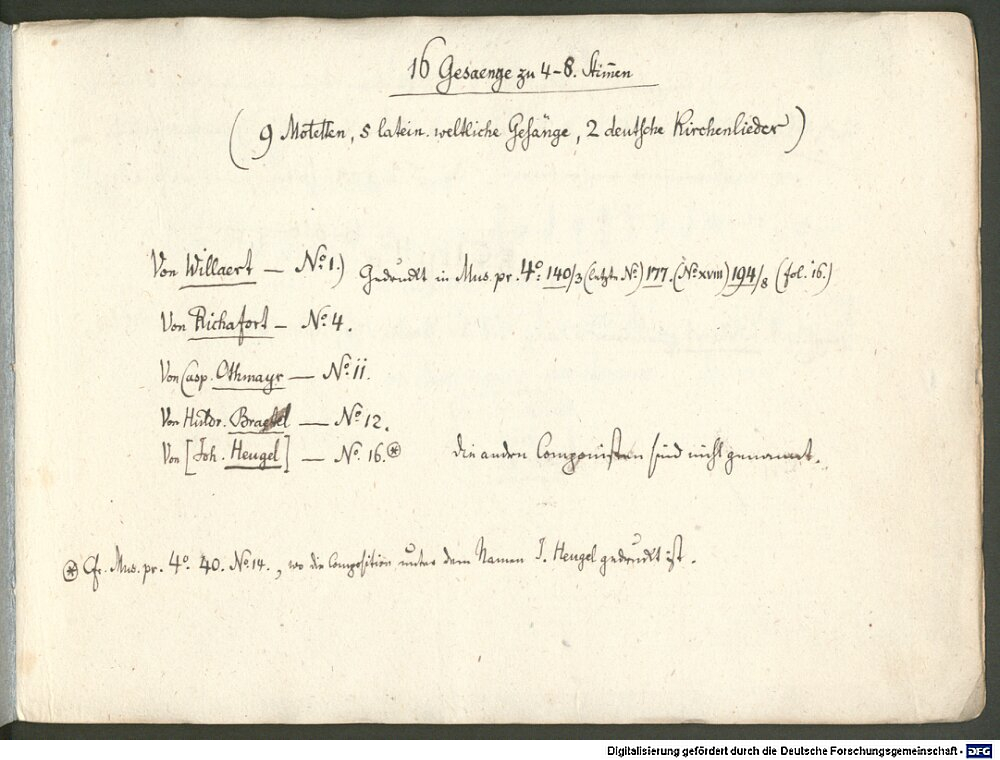 16 Gesaenge zu 4-8. Stim̅en
(9 Motetten, 5 latein. weltliche Gesänge, 2 deutsche Kirchenlieder)
Von Willaert — No. 1.) Gedruckt in Mus. pr. 4o. 140/3 (letzte No) 177. (No. XVIII) 194/8 (fol. 16.)
Von Richafort — No. 4.
Von Casp. Othmayr — No. 11.
Von Huldr. — No. 12.
Von [Joh. Heugel] — No. 16. ⊛ die andren Componisten sind nicht genannt.
⊛ Cfr. Mus. pr. 4o. 40. No. 14., wo die Composition unter dem Namen J. Heugel gedruckt ist.
Digitalisierung gefördert durch die Deutsche Forschungsgemeinschaft - DFG